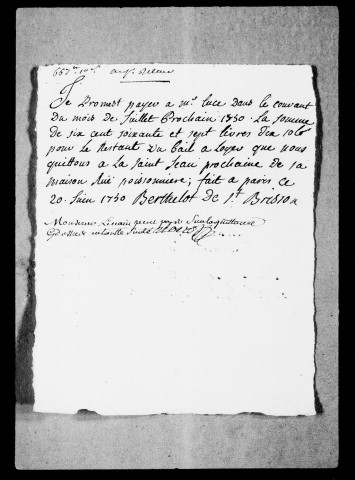 667ᵗᵗ 10ˢ
Je Promest payer a Mr. Luce dans le courant
Du mois de Juillet Prochain 1750 La somme
de six cent soixante et sept Livres dix sols
pour le Restant Du Bail a Loyer que nous
quittons a La Saint Jean prochaine de sa
maison Rüe poisonniere; fait a paris ce
20 Juin 1750 Berthelot de St. Brisson
Monsieur